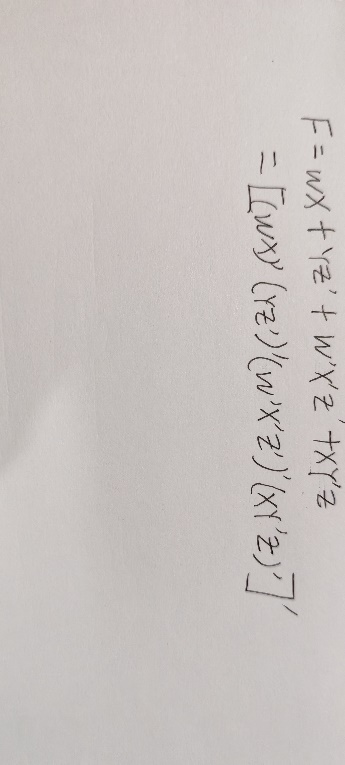 F = wX + YZ' + W'X'Z' + XY'Z
= [(wX)' (YZ')' (W'X'Z')' (XY'Z)']'